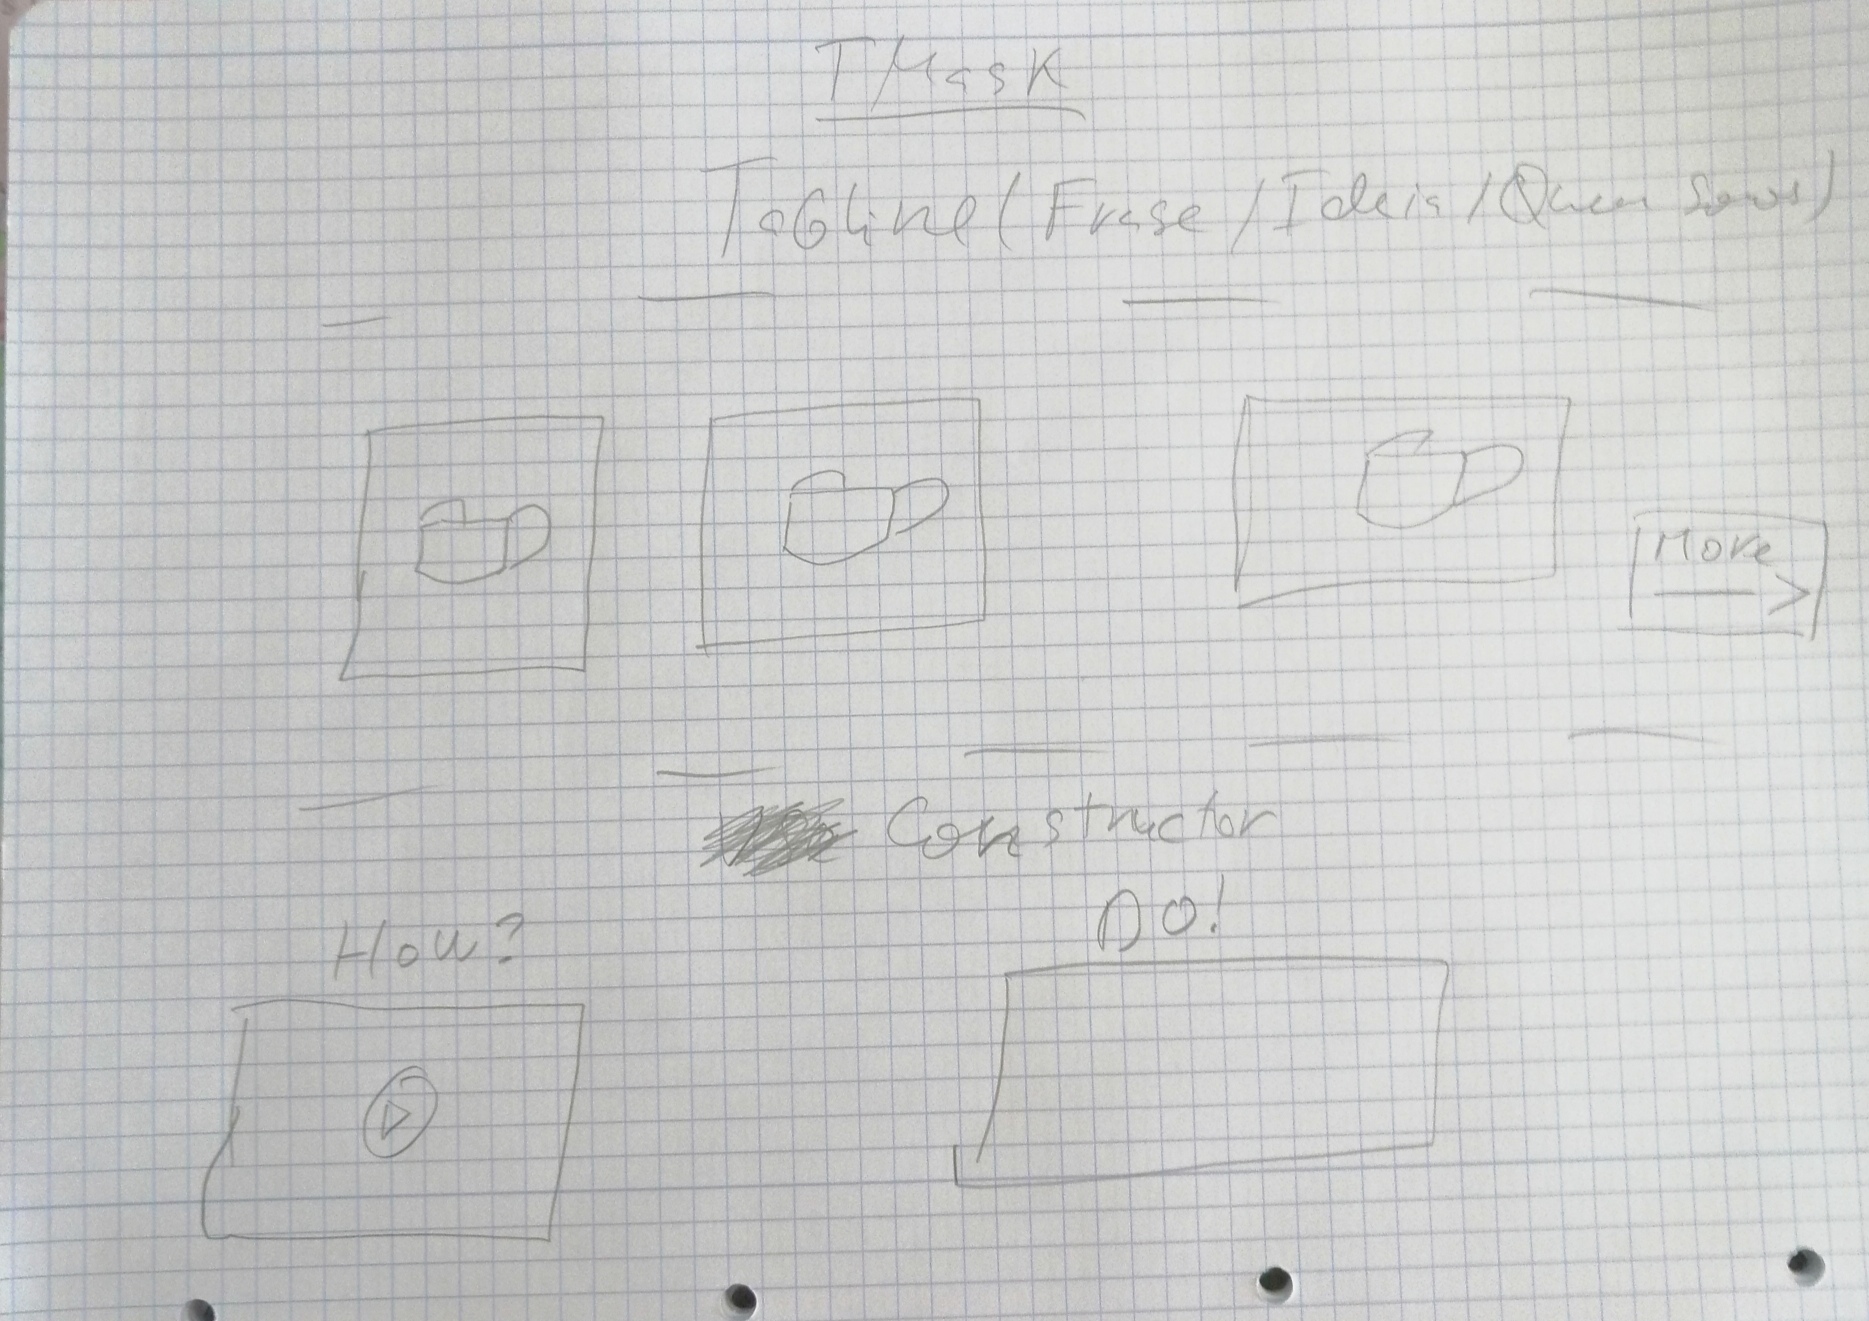 TMask
Tagline (Frase / Ideia / Quem Somos)
More
Constructor
How?
DO!